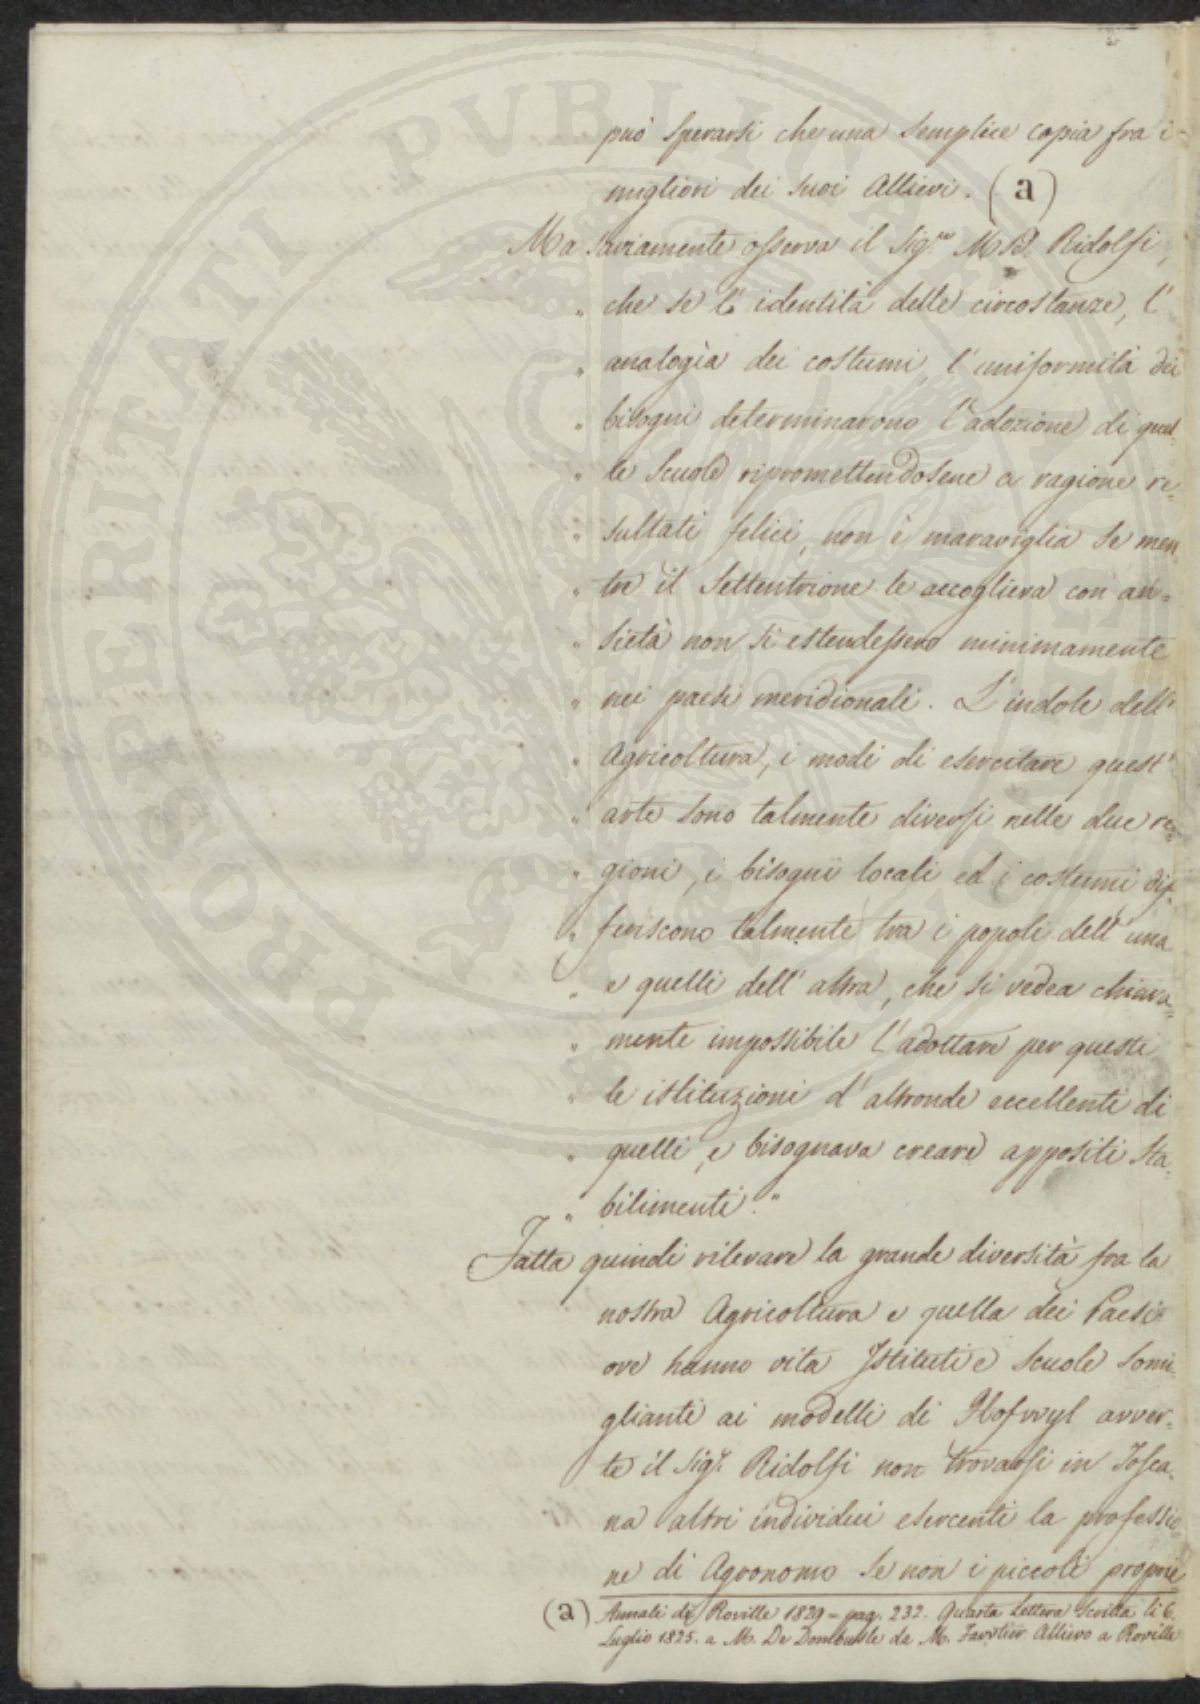 può sperarsi che una semplice copia fra i
migliori dei suoi Allievi. (a)
Ma saviamente osserva il Sig.re M.se Ridolfi,
„ che se l'identità delle circostanze, l'
„ analogìa dei costumi, l'uniformità dei
„ bisogni determinarono l'adozione di quel-
„ le Scuole ripromettendosene a ragione re-
„ sultati felici, non è maraviglia se men
„ tre il Settentrione le accoglieva con an-
„ sietà non si estendessero minimamente
„ nei paesi meridionali. L'indole dell'
„ Agricoltura, i modi di esercitare quest'
„ arte sono talmente diversi nelle due re-
„ gioni, i bisogni locali ed i costumi dif-
„ feriscono talmente tra i popoli dell'una
„ e quelli dell'altra, che si vedea chiara-
„ mente impossibile l'adottare per questi
„ le istituzioni d'altronde eccellenti di
„ quelli, e bisognava creare appositi sta-
„ bilimenti."
Fatta quindi rilevare la grande diversità fra la
nostra Agricoltura e quella dei Paesi
ove hanno vita Istituti e Scuole somi-
glianti ai modelli di Hofwyl avver-
te il Sig.r Ridolfi non trovarsi in Tosca-
na altri individui esercenti la professio
ne di Agronomo se non i piccoli proprie
(a) Annali di Roville 1829 - pag. 232. Quarta Lettera Scritta li 6.
Luglio 1825. a M. De Dombasle da M. Allievo a Roville
PROSPERITATI PUBLICAE